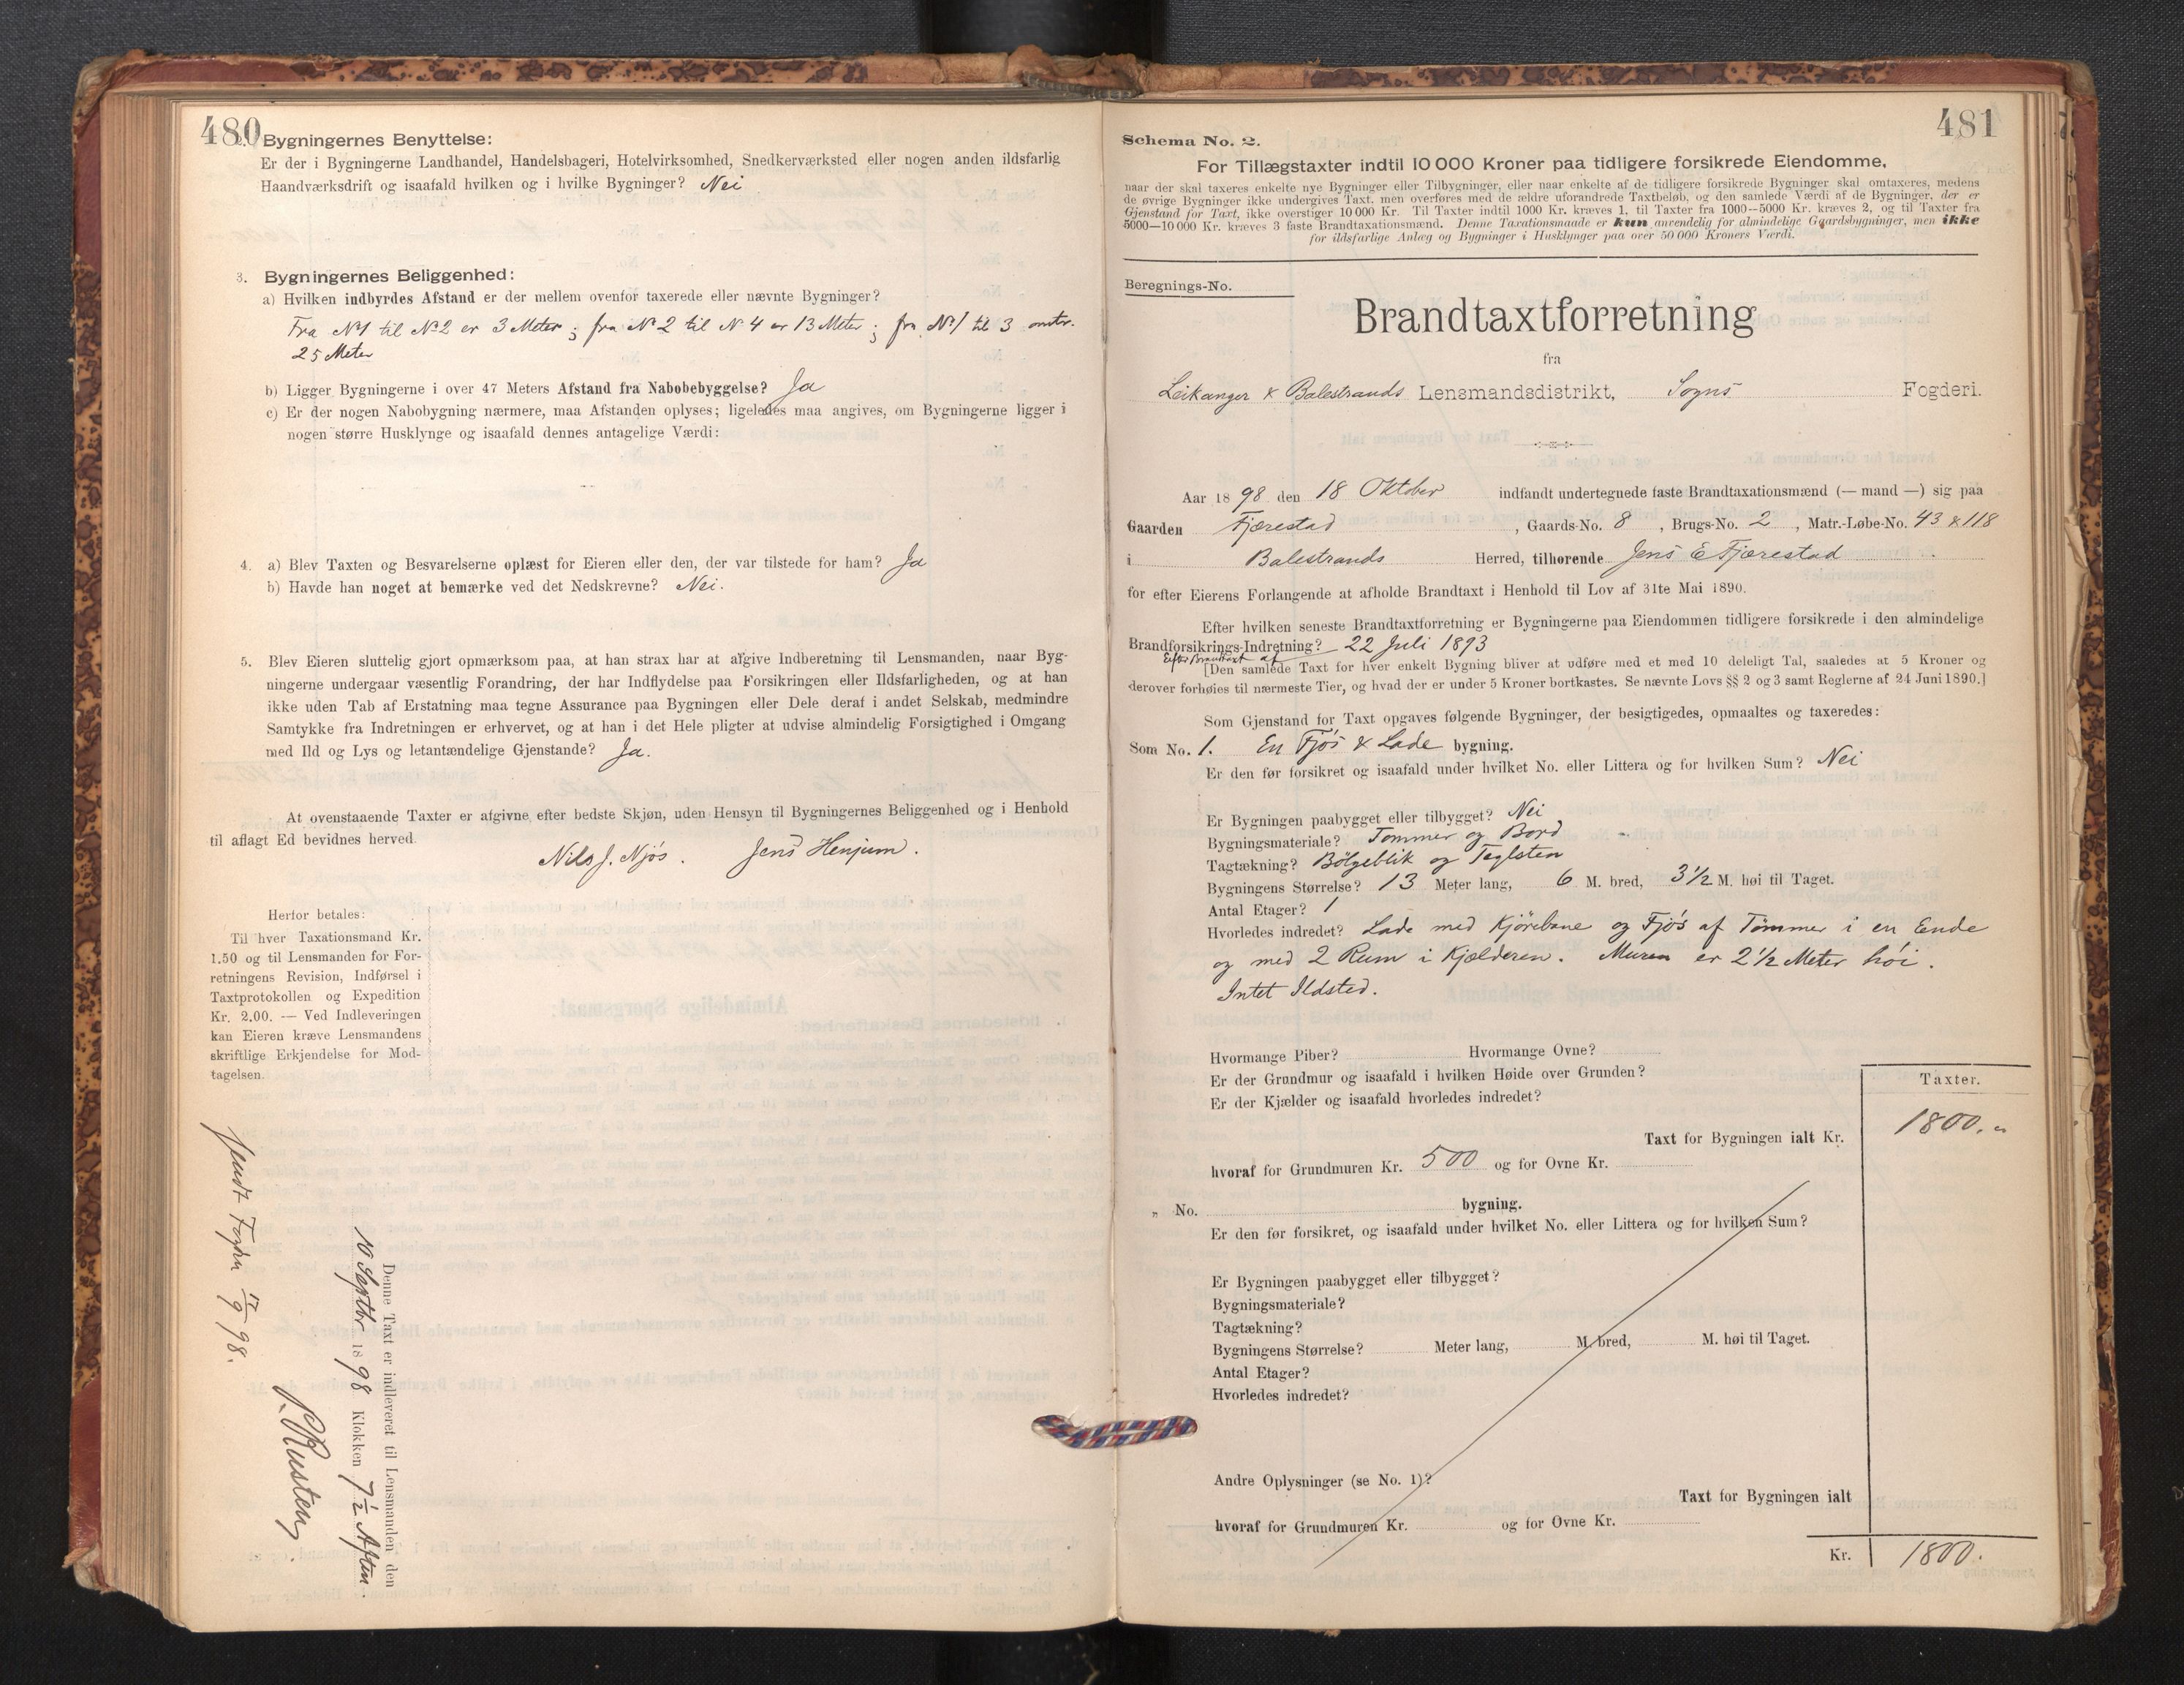 480
Bygningernes Benyttelse:
Er der i Bygningerne Landhandel, Handelsbageri, Hotelvirksomhed, Snedkerværksted eller nogen anden ildsfarlig
Haandværksdrift og isaafald hvilken og i hvilke Bygninger? Nei
3. Bygningernes Beliggenhed:
a) Hvilken indbyrdes Afstand er der mellem ovenfor taxerede eller nævnte Bygninger?
Fra No 1 til No 2 er 3 Meter; fra No 2 til N. 4 er 13 Meter; fra No 1 til 3 omtr.
25 Meter
b) Ligger Bygningerne i over 47 Meters Afstand fra Nabobebyggelse? Ja
c) Er der nogen Nabobygning nærmere, maa Afstanden oplyses; ligeledes maa angives, om Bygningerne ligger i
nogen større Husklynge og isaafald dennes antagelige Værdi:
4. a) Blev Taxten og Besvarelserne oplæst for Eieren eller den, der var tilstede for ham? Ja
b) Havde han noget at bemærke ved det Nedskrevne? Nei.
5. Blev Eieren sluttelig gjort opmærksom paa, at han strax har at afgive Indberetning til Lensmanden, naar Byg-
ningerne undergaar væsentlig Forandring, der har Indflydelse paa Forsikringen eller Ildsfarligheden, og at han
ikke uden Tab af Erstatning maa tegne Assurance paa Bygningen eller Dele deraf i andet Selskab, medmindre
Samtykke fra Indretningen er erhvervet, og at han i det Hele pligter at udvise almindelig Forsigtighed i Omgang
med Ild og Lys og letantændelige Gjenstande? Ja.
At ovenstaaende Taxter er afgivne efter bedste Skjøn, uden Hensyn til Bygningernes Beliggenhed og i Henhold
til aflagt Ed bevidnes herved.
Nils J. Njøs. Jens Henjum.
Herfor betales:
Til hver Taxationsmand Kr.
1.50 og til Lensmanden for For-
retningens Revision, Indførsel i
Taxtprotokollen og Expedition
Kr. 2.00. — Ved Indleveringen
kan Eieren kræve Lensmandens
skriftlige Erkjendelse for Mod-
tagelsen.
Denne Taxt er indleveret til Lensmanden den
10 Septbr 1898 Klokken 7 1/2 Aften
P. Rusten
Sendt Fogden 17/9 98.
481
Schema No. 2.
For Tillægstaxter indtil 10 000 Kroner paa tidligere forsikrede Eiendomme,
naar der skal taxeres enkelte nye Bygninger eller Tilbygninger, eller naar enkelte af de tidligere forsikrede Bygninger skal omtaxeres, medens
de øvrige Bygninger ikke undergives Taxt, men overføres med de ældre uforandrede Taxtbeløb, og den samlede Værdi af de Bygninger, der er
Gjenstand for Taxt, ikke overstiger 10 000 Kr. Til Taxter indtil 1000 Kr. kræves 1, til Taxter fra 1000—5000 Kr. kræves 2, og til Taxter fra
5000—10 000 Kr. kræves 3 faste Brandtaxationsmænd. Denne Taxationsmaade er kun anvendelig for almindelige Gaardsbygninger, men ikke
for ildsfarlige Anlæg og Bygninger i Husklynger paa over 50 000 Kroners Værdi.
Beregnings-No.
Brandtaxtforretning
fra
Leikanger & Balestrands Lensmandsdistrikt, Sogns Fogderi.
Aar 1898 den 18 Oktober indfandt undertegnede faste Brandtaxationsmænd (— mand —) sig paa
Gaarden Fjærestad, Gaards-No. 8, Brugs-No. 2, Matr.-Løbe-No. 43 & 118
i Balestrands Herred, tilhørende Jens E Fjærestad
for efter Eierens Forlangende at afholde Brandtaxt i Henhold til Lov af 31te Mai 1890.
Efter hvilken seneste Brandtaxtforretning er Bygningerne paa Eiendommen tidligere forsikrede i den almindelige
Brandforsikrings-Indretning? 22 Juli 1893
Efter Brandtaxt af
[Den samlede Taxt for hver enkelt Bygning bliver at udføre med et med 10 deleligt Tal, saaledes at 5 Kroner og
derover forhøies til nærmeste Tier, og hvad der er under 5 Kroner bortkastes. Se nævnte Lovs §§ 2 og 3 samt Reglerne af 24 Juni 1890.]
Som Gjenstand for Taxt opgaves følgende Bygninger, der besigtigedes, opmaaltes og taxeredes:
Som No. 1. En Fjøs & Lade bygning.
Er den før forsikret og isaafald under hvilket No. eller Littera og for hvilken Sum? Nei
Er Bygningen paabygget eller tilbygget? Nei
Bygningsmateriale? Tømmer og Bord
Tagtækning? Bölgeblik og Taglsten
Bygningens Størrelse? 13 Meter lang, 6 M. bred, 3 1/2 M. høi til Taget.
Antal Etager? 1
Hvorledes indredet? Lade med Kjörebane og Fjøs af Tømmer i en Ende
og med 2 Rum i Kjælderen. Muren er 2 1/2 Meter høi.
Intet Ildsted.
Hvormange Piber? Hvormange Ovne?
Er der Grundmur og isaafald i hvilken Høide over Grunden?
Er der Kjælder og isaafald hvorledes indredet?
Taxter.
Taxt for Bygningen ialt Kr. 1800.
hvoraf for Grundmuren Kr. 500 og for Ovne Kr.
„ No. bygning.
Er den før forsikret, og isaafald under hvilket No. eller Littera og for hvilken Sum?
Er Bygningen paabygget eller tilbygget?
Bygningsmateriale?
Tagtækning?
Bygningens Størrelse? Meter lang, M. bred, M. høi til Taget.
Antal Etager?
Hvorledes indredet?
Andre Oplysninger (se No. 1)?
Taxt for Bygningen ialt
hvoraf for Grundmuren Kr. og for Ovne Kr.
Kr. 1800.